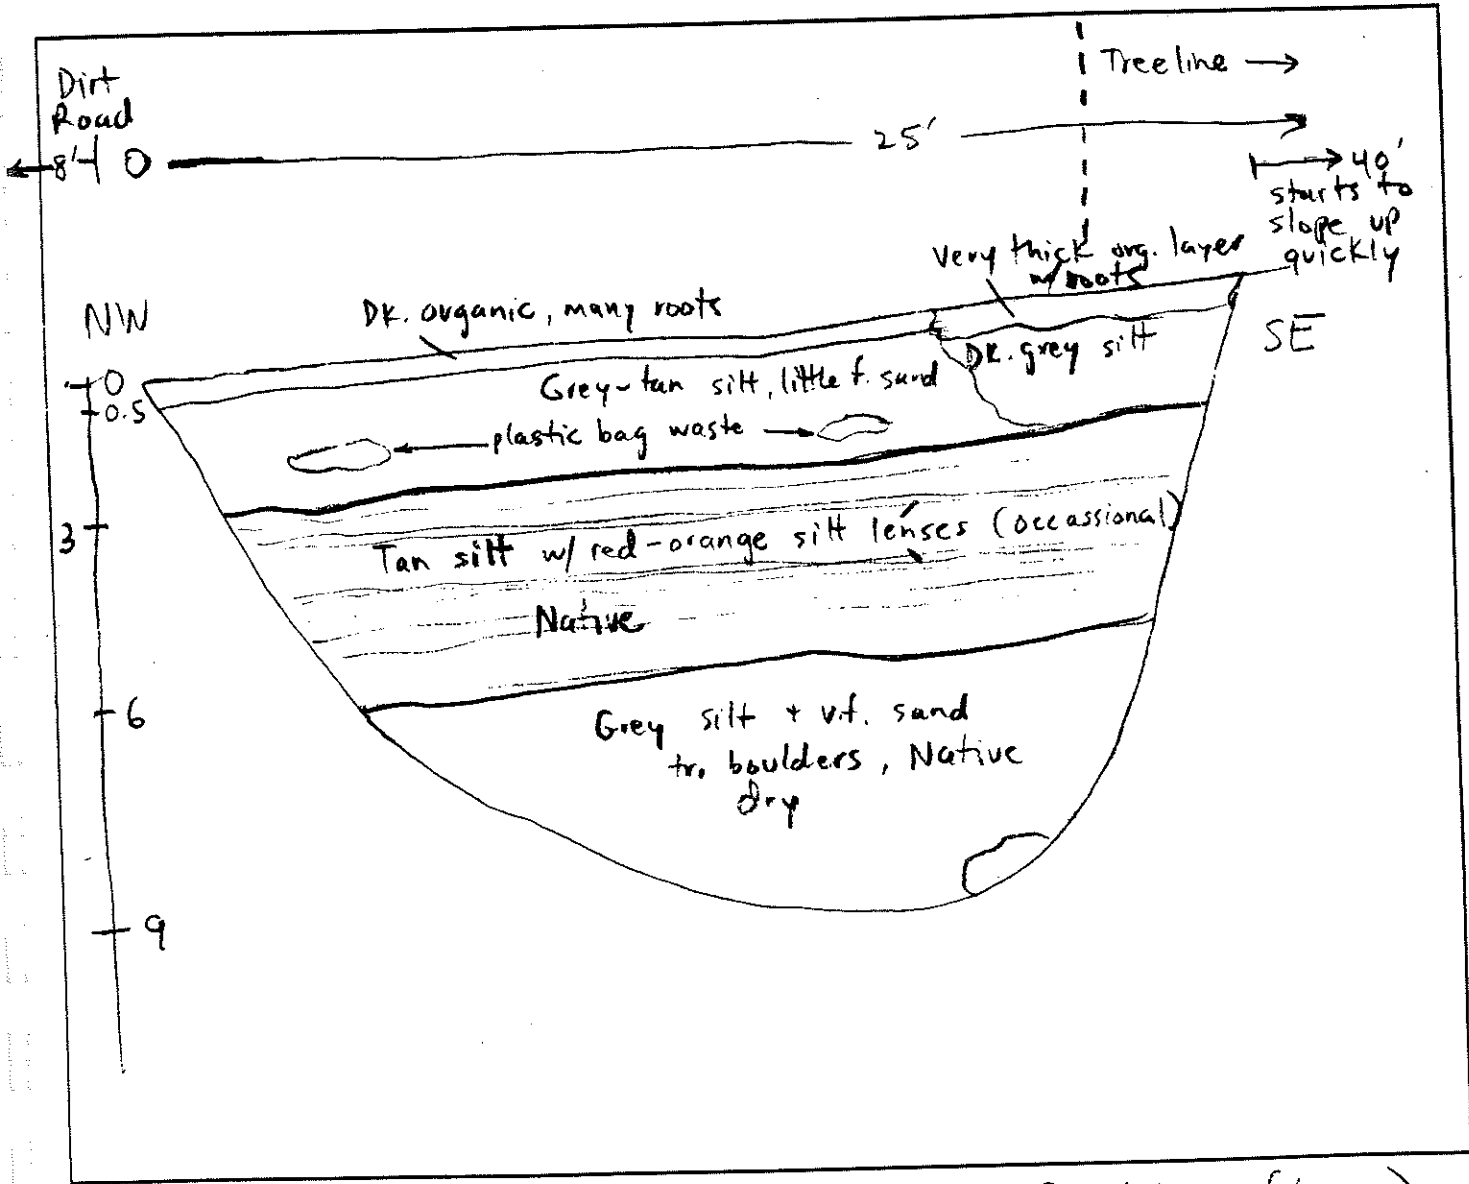 Dirt
Road
8'
0
25'
Treeline
40'
starts to
slope up
quickly
Very thick org. layer
w/ roots
NW
Dk. organic, many roots
SE
0
0.5
Dk. grey silt
Grey-tan silt, little f. sand
plastic bag waste
3
Tan silt w/ red-orange silt lenses (occassional)
Native
6
Grey silt + v.f. sand
tr. boulders, Native
dry
9